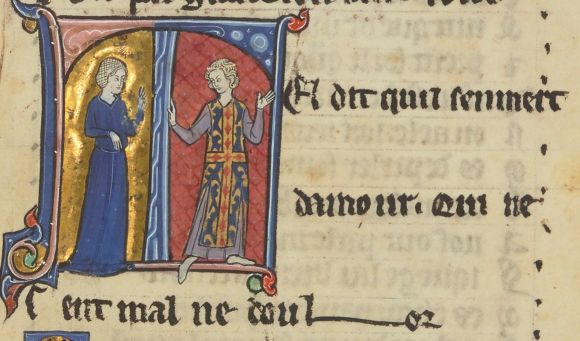 TEl dit quil semuert
damour. Qui ne
sent mal ne doulor